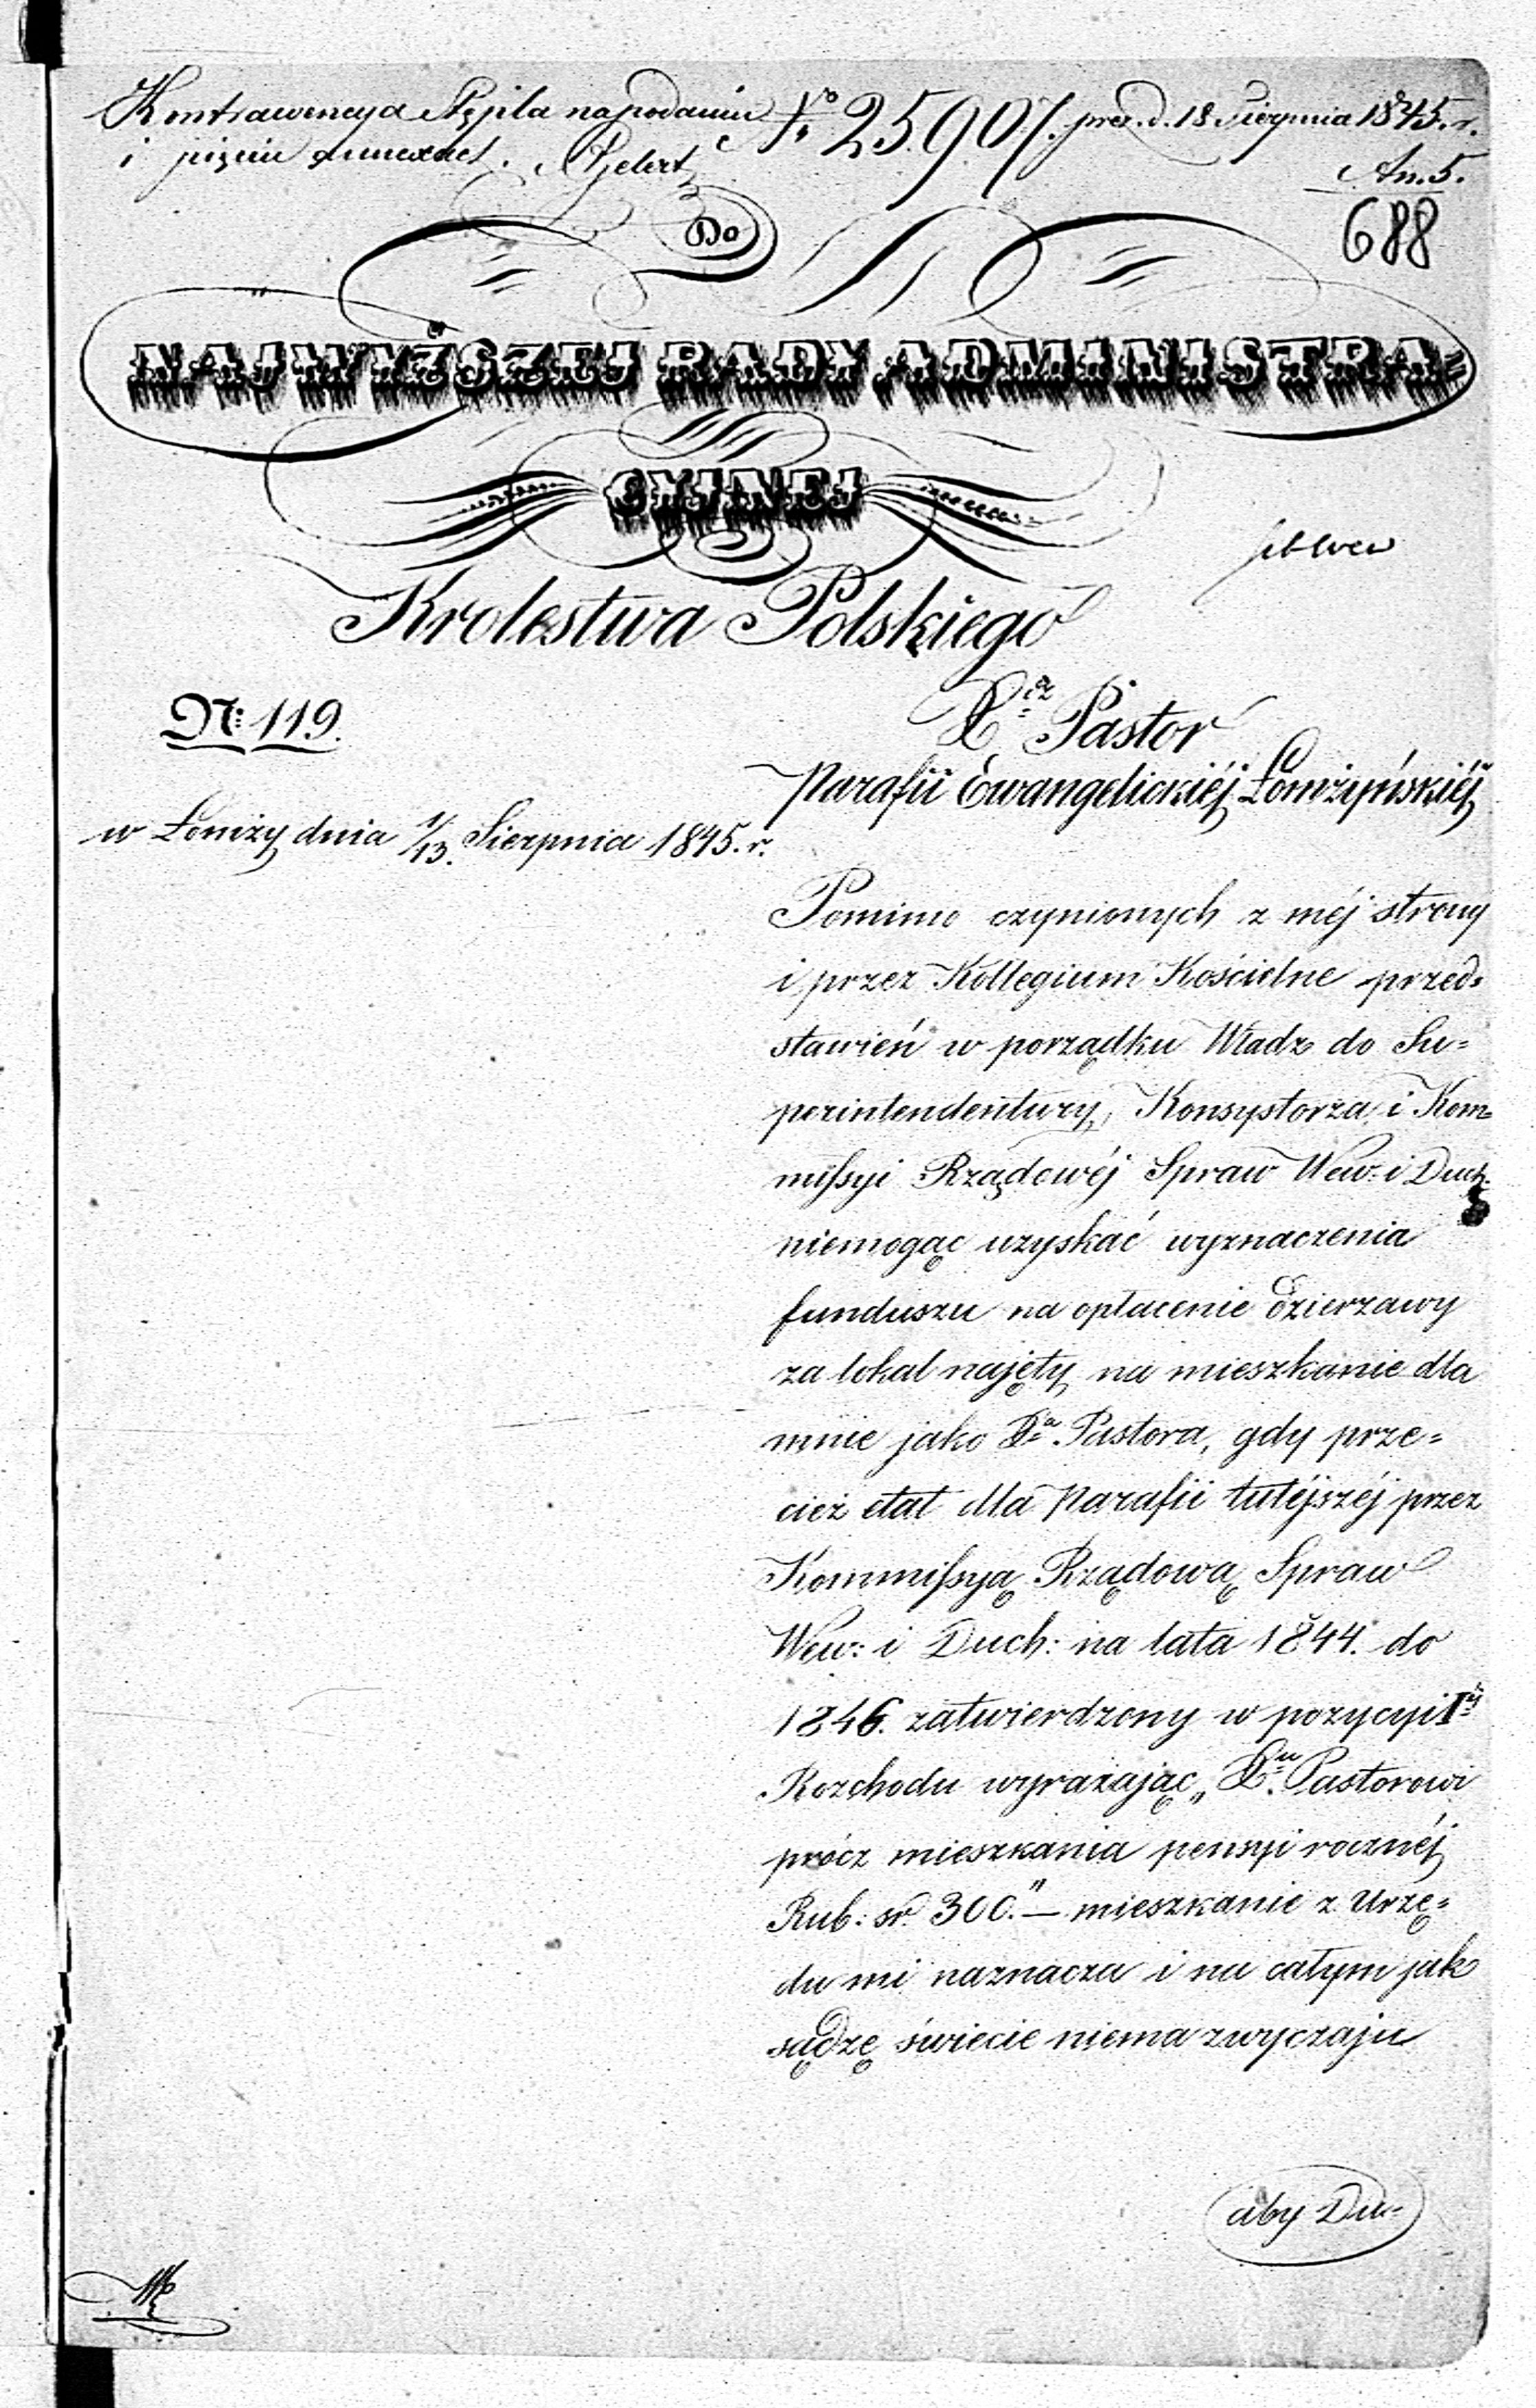 Kontrawencya Stępla na podaniu
i pięciu annexach.
№ 25907. prez. d. 18 Sierpnia 1845. r.
An. 5.
688
Do
NAJWYŻSZEJ RADY ADMINISTRA=
CYJNEJ
Krolestwa Polskiego
N: 119.
X.dz Pastor
Parafii Ewangelickiéj Łomżyńskiéj
w Łomży dnia 1/13. Sierpnia 1845. r.
Pomimo czynionych z méj strony
i przez Kollegium Kościelne przed=
stawień w porządku Władz do Su=
perintendentury, Konsystorza i Kom=
missyi Rządowéj Spraw Wew: i Duch:
niemogąc uzyskać wyznaczenia
funduszu na opłacenie dzierzawy
za lokal najęty na mieszkanie dla
mnie jako X.a Pastora, gdy prze=
cież etat dla Parafii tutéjszéj przez
Kommissyą Rządową Spraw
Wew: i Duch: na lata 1844. do
1846. zatwierdzony w pozycyi I.éj
Rozchodu wyrażając „X.u Pastorowi
prócz mieszkania pensyi rocznéj
Rub: sr. 300." — mieszkanie z Urzę=
du mi naznacza i na całym jak
sądzę świecie niema zwyczaju
aby Du=